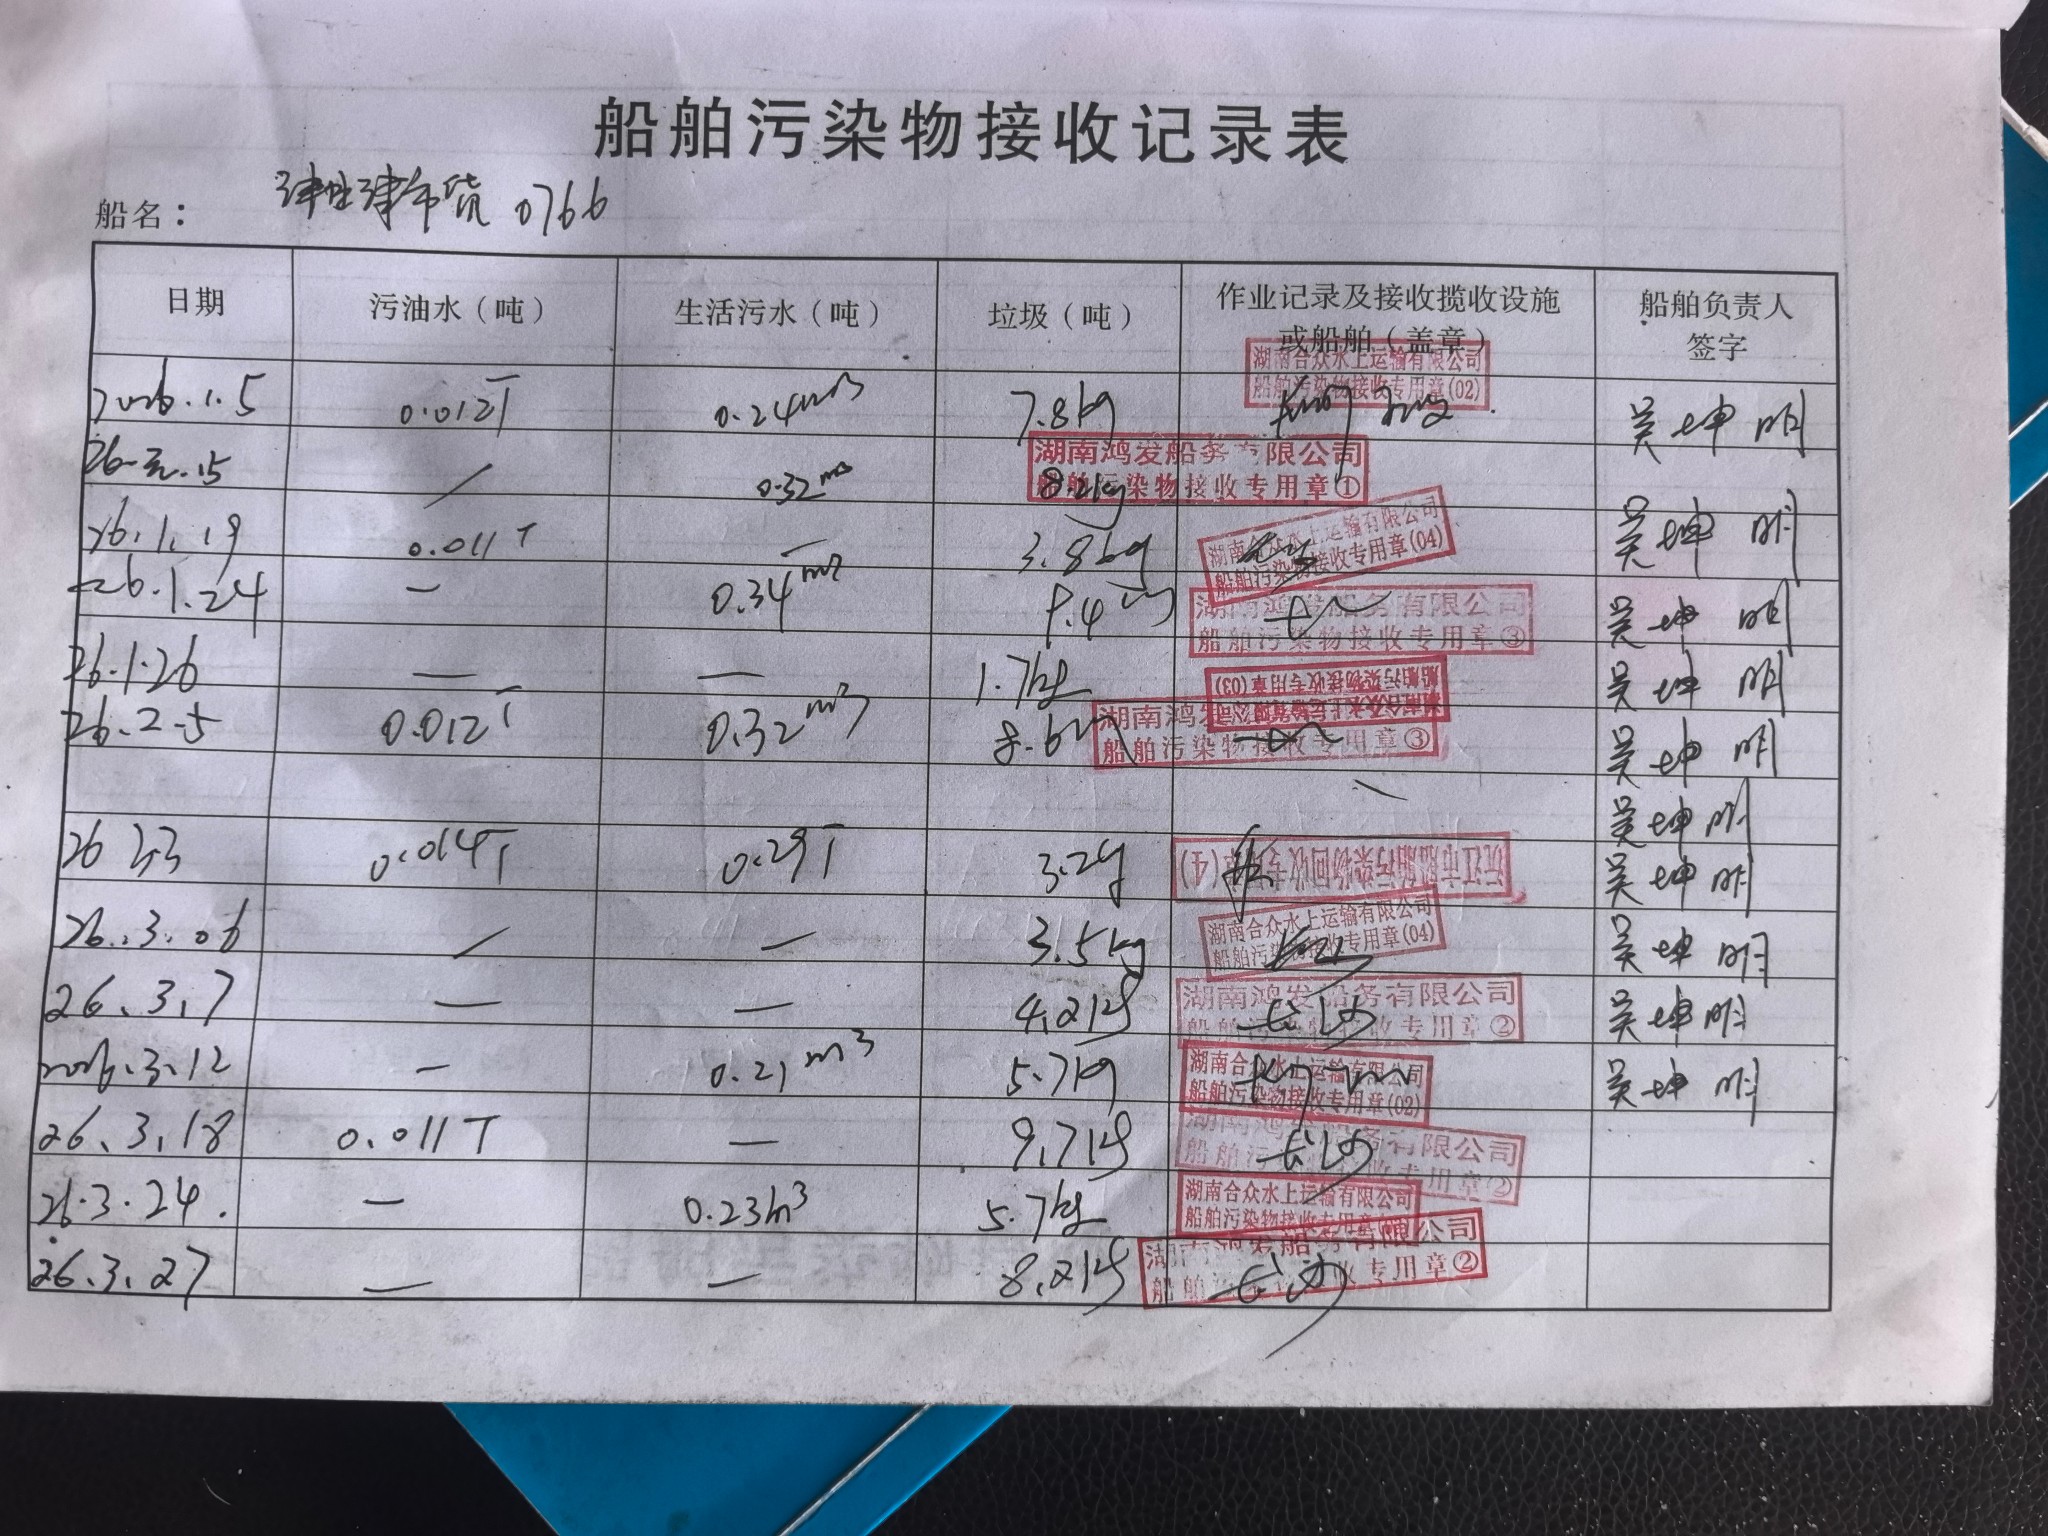 船舶污染物接收记录表
船名： 津市货 0766
日期 污油水（吨） 生活污水（吨） 垃圾（吨） 作业记录及接收揽收设施或船舶（盖章） 船舶负责人签字
湖南合众水上运输有限公司
船舶污染物接收专用章(02)
2026.1.5 0.012T 0.24m3 7.8kg 吴坤明
湖南鸿发船务有限公司
船舶污染物接收专用章①
26.元.15 / 0.32m3 8.2kg
湖南合众水上运输有限公司
船舶污染物接收专用章(04)
26.1.19 0.011T — 3.8kg 吴坤明
湖南鸿发船务有限公司
船舶污染物接收专用章③
26.1.24 — 0.34m3 吴坤明
湖南合众水上运输有限公司
船舶污染物接收专用章(03)
26.1.26 — — 1.7kg 吴坤明
湖南鸿
船舶污染物接收专用章③
26.2.5 0.012T 0.32m3 8.6 吴坤明
吴坤明
沅江市船舶污染物回收专用(4)
26 0.014T 0.29T 吴坤明
湖南合众水上运输有限公司
船舶污染物接收专用章(04)
26.3.06 / — 3.5kg 吴坤明
湖南鸿发船务有限公司
船舶污染物接收专用章②
26.3.7 — — 4.2kg 长沙 吴坤明
湖南合众水上运输有限公司
船舶污染物接收专用章(02)
2026.3.12 — 0.21m3 5.7kg 吴坤明
湖南鸿发船务有限公司
船舶污染物接收专用章②
26.3.18 0.011T — 9.7kg 长沙
湖南合众水上运输有限公司
船舶污染物接收专用章
26.3.24. — 0.23m3 5.7kg
湖南鸿发船务有限公司
船舶污染物接收专用章②
26.3.27 — — 8.2kg 长沙